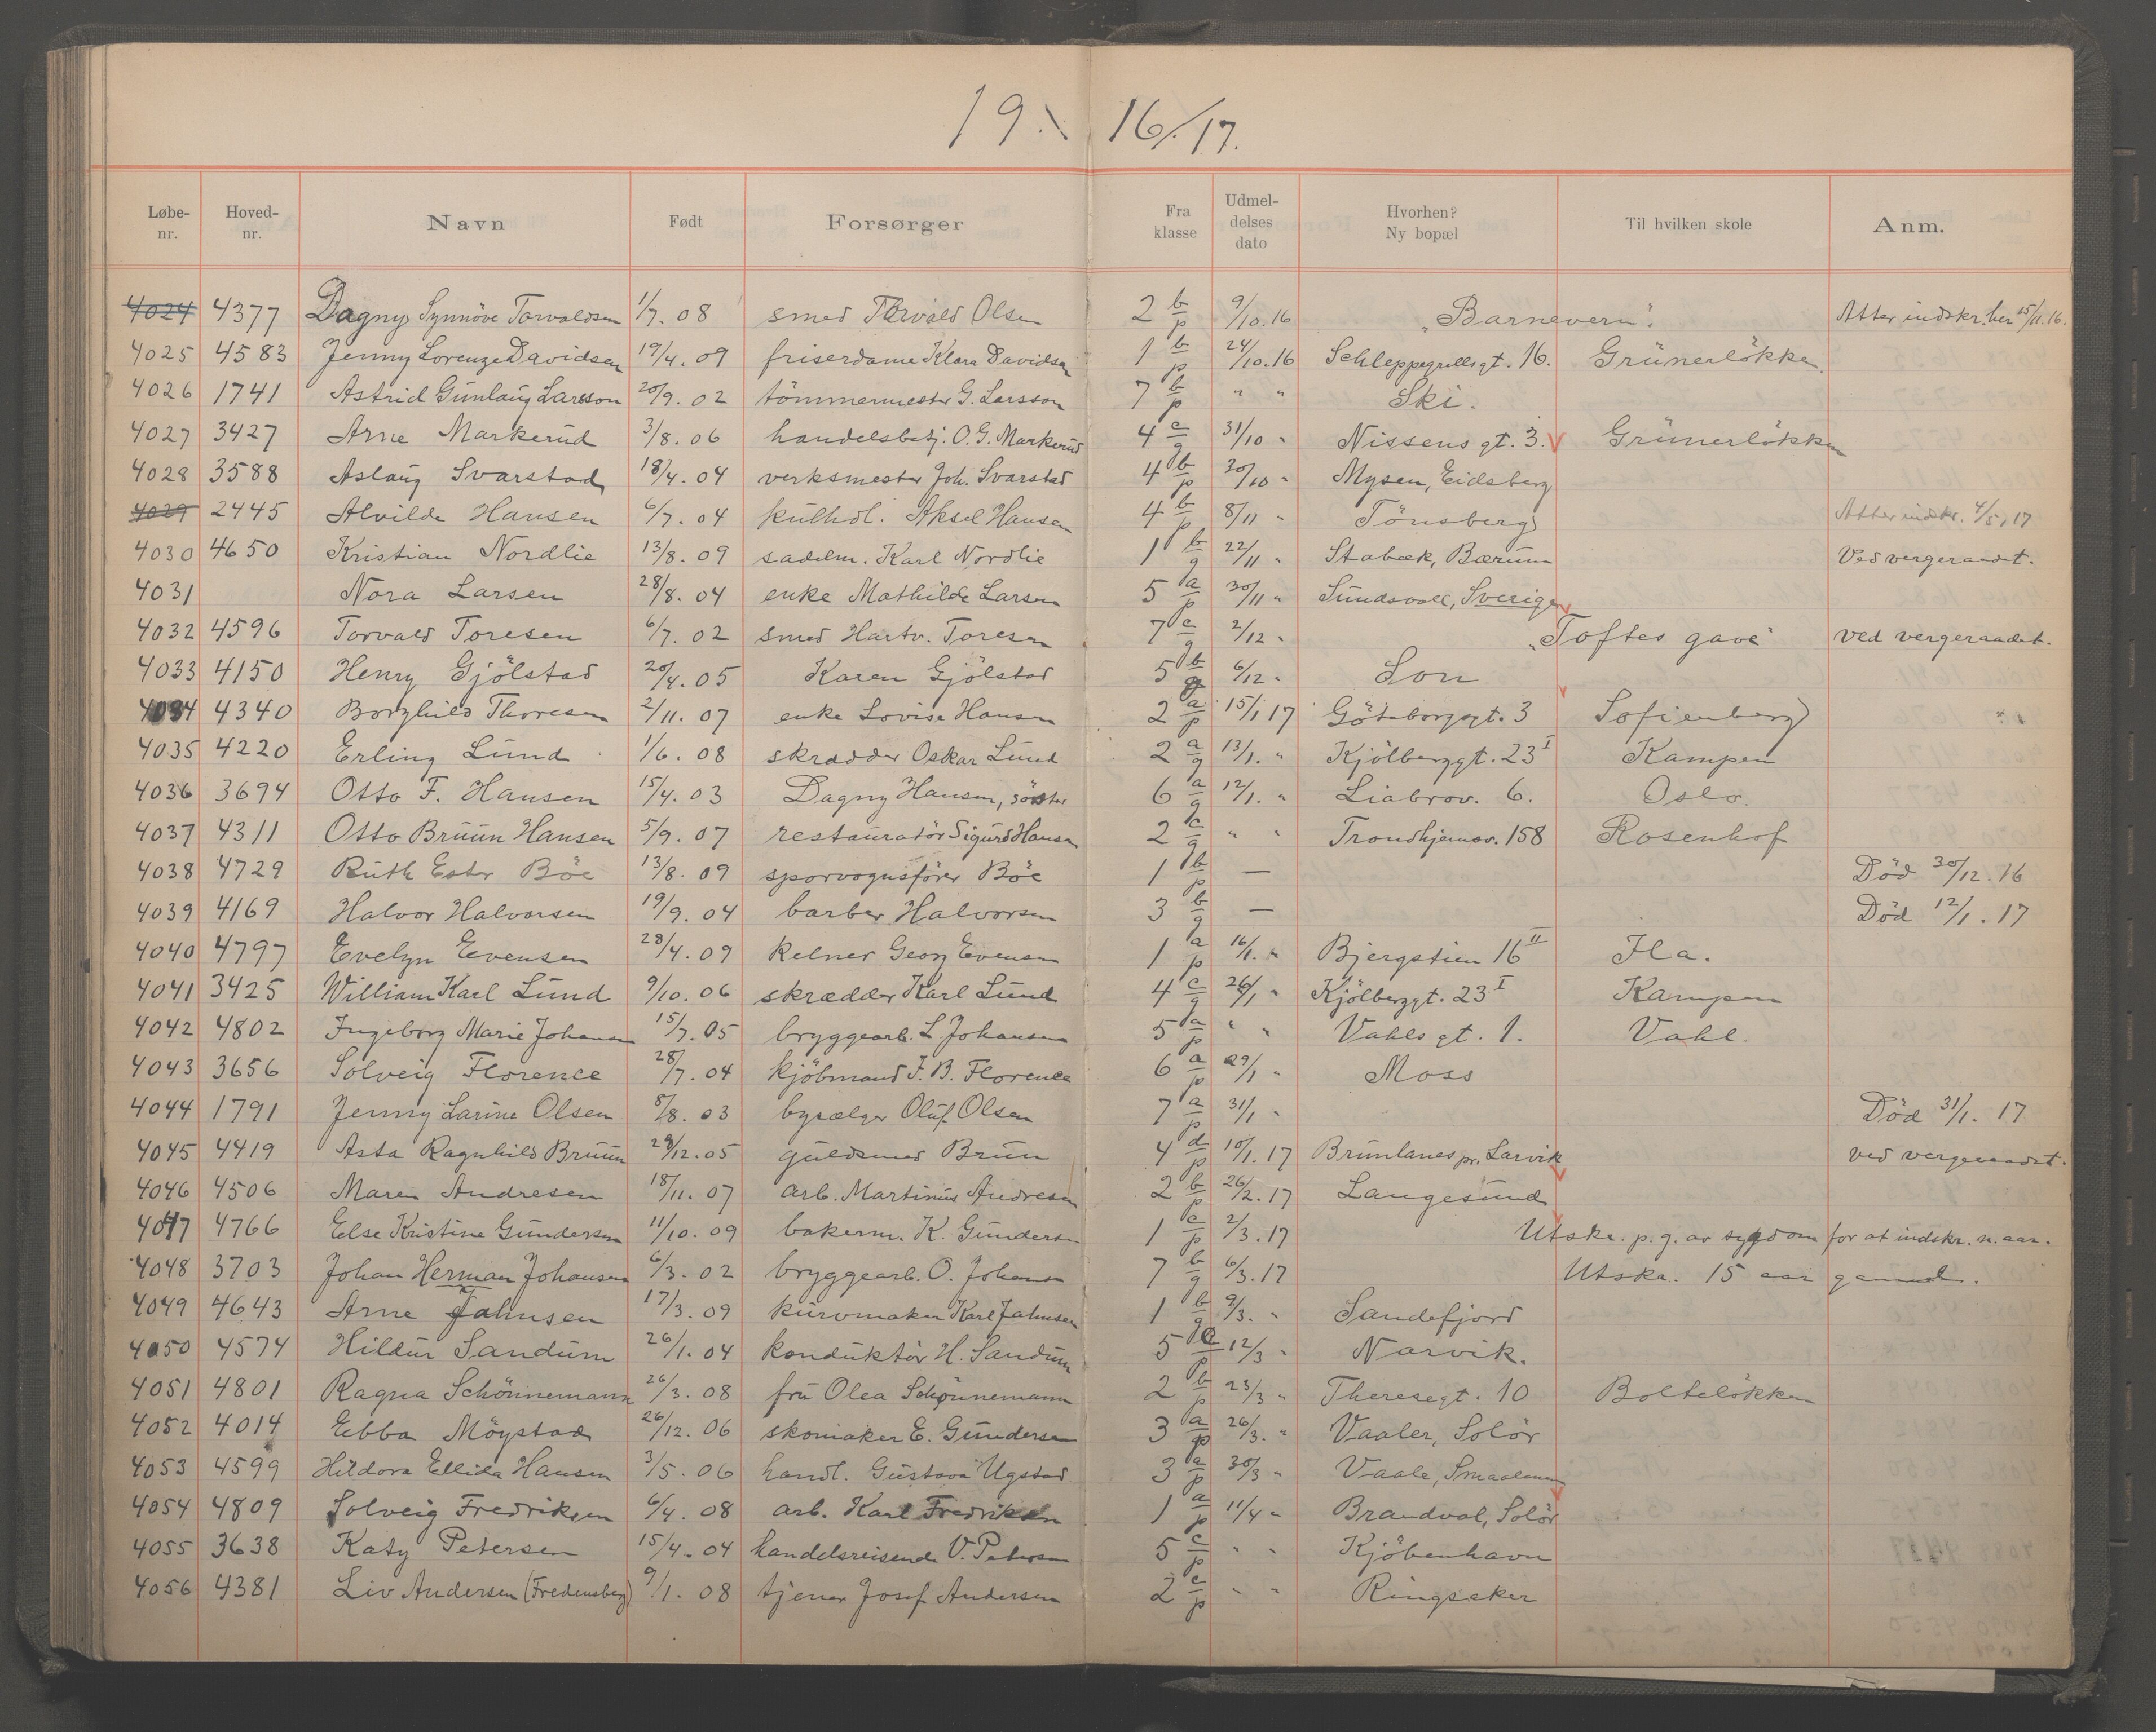 19 16/17.
Løbe-nr. Hoved-nr. Navn Født Forsørger Fra klasse Udmel-delses dato Hvorhen? Ny bopæl Til hvilken skole Anm.
4024 4377 Dagny Synnöve Torvaldsen 1/7. 08 smed Torvald Olsen 2 b/p 9/10.16 "Barnevern". Atter indskr. her 15/11.16.
4025 4583 Jenny Lorenze Davidsen 19/4. 09 friserdame Klara Davidsen 1 b/p 24/10.16 Schleppegrellsgt. 16. Grünerlökken.
4026 1741 Astrid Gunlaug Larsson 20/9. 02 tömmermester G. Larsson 7 b/p " " Ski.
4027 3427 Arne Markerud 3/8. 06 handelsbetj. O. G. Markerud 4 c/g 31/10 " Nissens gt. 3. Grünerlökken
4028 3588 Aslaug Svarstad 18/4. 04 verksmester Joh. Svarstad 4 b/p 30/10 " Mysen, Eidsberg
4029 2445 Alvilde Hansen 6/7. 04 kulhdl. Aksel Hansen 4 b/p 8/11 " Tönsberg Atter indskr. 4/5.17
4030 4650 Kristian Nordlie 13/8. 09 sadelm. Karl Nordlie 1 b/g 22/11 " Stabæk, Bærum Ved vergeraadet.
4031 Nora Larsen 28/8. 04 enke Mathilde Larsen 5 a/p 30/11 " Sundsvall, Sverige
4032 4596 Torvald Toresen 6/7. 02 smed Hartv. Toresen 7 c/g 2/12 " "Toftes gave" ved vergeraadet.
4033 4150 Henry Gjölstad 20/4. 05 Karen Gjölstad 5 b/g 6/12 " Son
4034 4340 Borghild Thoresen 2/11. 07 enke Lovise Hansen 2 a/p 15/1 17 Göteborggt. 3 Sofienberg
4035 4220 Erling Lund 1/6. 08 skrædder Oskar Lund 2 a/g 13/1. " Kjölberggt. 23 I Kampen
4036 3694 Otto F. Hansen 15/4. 03 Dagny Hansen, söster 6 a/g 12/1. " Liabrov. 6. Oslo.
4037 4311 Otto Bruun Hansen 5/9. 07 restauratör Sigurd Hansen 2 c/g " " Trondhjemsv. 158 Rosenhof
4038 4729 Ruth Ester Böe 13/8. 09 sporvognsförer Böe 1 b/p — Död 30/12. 16
4039 4169 Halvor Halvorsen 19/9. 04 barber Halvorsen 3 b/g — Död 12/1. 17
4040 4797 Evelyn Evensen 28/4. 09 kelner Georg Evensen 1 a/p 16/1. " Bjergstien 16 II Ila.
4041 3425 William Karl Lund 9/10. 06 skrædder Karl Lund 4 c/g 26/1 " Kjölberggt. 23 I Kampen
4042 4802 Ingeborg Marie Johansen 15/7. 05 bryggearb. L. Johansen 5 a/p " " Vahls gt. 1. Vahl.
4043 3656 Solveig Florence 28/7. 04 kjöbmand J. B. Florence 6 a/p 29/1 " Moss
4044 1791 Jenny Larine Olsen 8/8. 03 bysælger Oluf Olsen 7 a/p 31/1 " Död 31/1. 17
4045 4419 Asta Ragnhild Bruun 29/12. 05 guldsmed Brun 4 d/p 10/1. 17 Brunlanes pr. Larvik ved vergeraadet.
4046 4506 Maren Andresen 18/11. 07 arb. Martinius Andresen 2 b/p 26/2. 17 Langesund
4047 4766 Else Kristine Gundersen 11/10. 09 bakerm. K. Gundersen 1 c/p 2/3. 17 Utskr. p. g. av sygdom for at indskr. n. aar.
4048 3703 Johan Herman Johansen 6/3. 02 bryggearb. O. Johansen 7 b/g 6/3. 17 Utskr. 15 aar gammel.
4049 4643 Arne Jahnsen 17/3. 09 kurvmaker Karl Jahnsen 1 b/g 9/3. " Sandefjord
4050 4574 Hildur Sandum 26/1. 04 konduktör H. Sandum 5 c/p 12/3 " Narvik.
4051 4801 Ragna Schönnemann 26/3. 08 fru Olea Schönnemann 2 b/p 23/3 " Theresegt. 10 Bolteløkken
4052 4014 Ebba Möystad 26/12. 06 skomaker E. Gundersen 3 a/p 26/3. " Vaaler, Solör
4053 4599 Hildora Ellida Hansen 3/5. 06 handl. Gustava Ugstad 3 a/p 30/3 " Vaale, Smaalenene
4054 4809 Solveig Fredriksen 6/4. 08 arb. Karl Fredriksen 1 a/p 11/4 " Brandval, Solör
4055 3638 Katy Petersen 15/4. 04 handelsreisende V. Petersen 5 c/p " " Kjöbenhavn
4056 4381 Liv Andersen (Fredensberg) 9/1. 08 tjener Josef Andersen 2 c/p " " Ringsaker